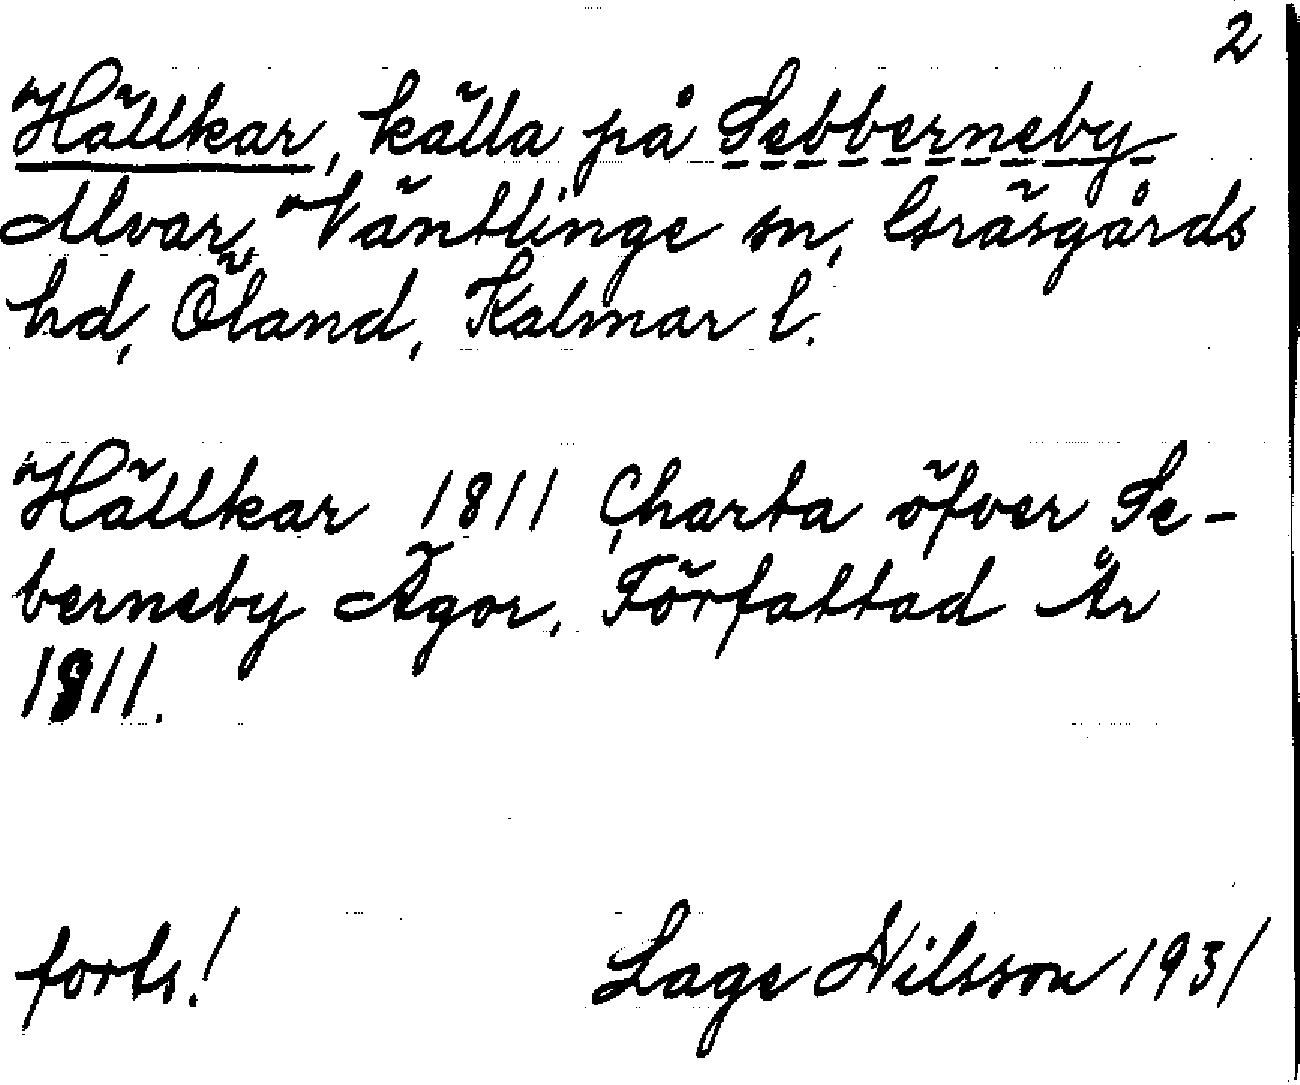 2
Hällkar, källa på Sebberneby
Alvar, Ventlinge sn, Gräsgårds
hd, Öland, Kalmar l.
Hällkar 1811 Charta öfver Se-
berneby Ägor, Författad År
1811.
forts! Lage Nilsson 1931